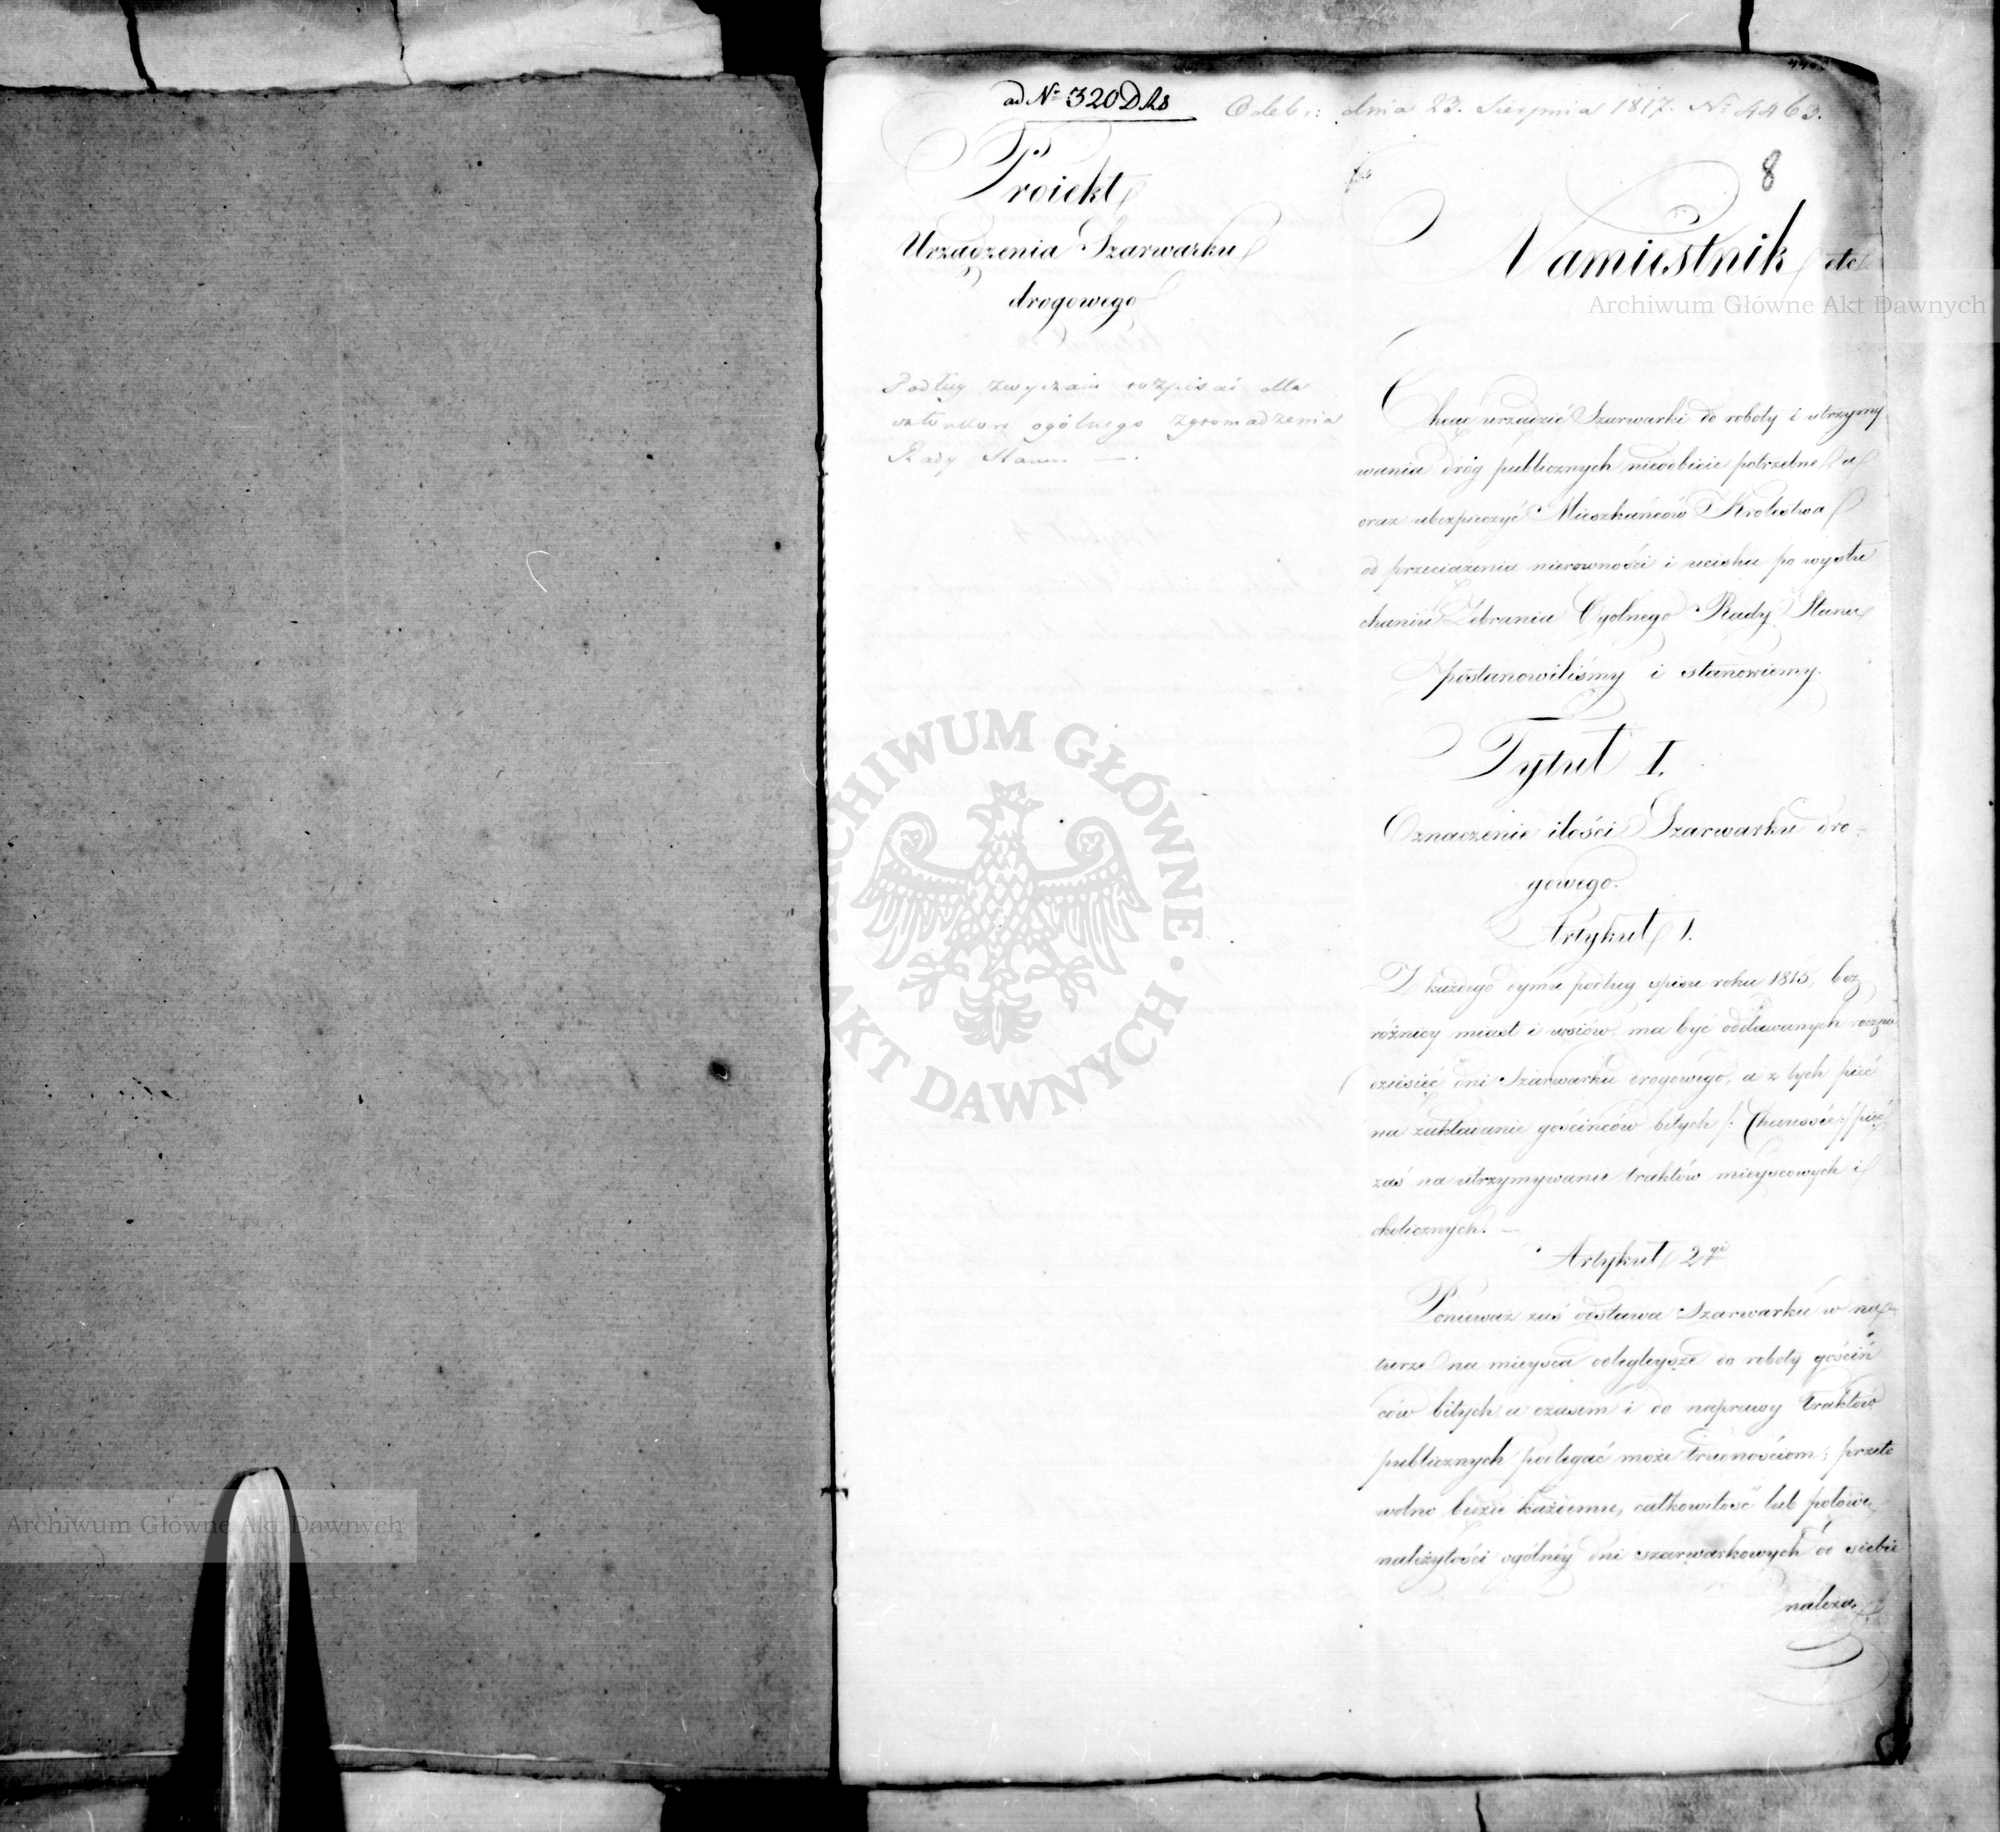 ad Nº 320 Dks
Odebr: dnia 23. Sierpnia 1817. Nº 4463.
8
Proiekt
Urządzenia Szarwarku
drogowego
Podług zwyczaiu rozpisać dla
członków ogólnego zgromadzenia
Rady Stanu. —.
Namiestnik etc
Chcąc urządzić Szarwarki do roboty i utrzymy
wania dróg publicznych nieodbicie potrzebne, a
oraz ubezpieczyć Mieszkańców Krolestwa
od przeciążenia nierowności i ucisku po wysłu
chaniu Zebrania Ogolnego Rady Stanu
postanowiliśmy i stanowiemy.
Tytuł I.
Oznaczenie ilości Szarwarku dro:
gowego.
Artykuł 1.
Z każdego dymu podług spisu roku 1815, bez
róźnicy miast i wsiów, ma być oddawanych roczna
dziesięć dni Szarwarku drogowego, a z tych pięć
na zakładanie gościńców bitych /: Chaussée :/ pięć
zaś na utrzymywanie traktów mieyscowych i
okolicznych. —
Artykuł 2gi
Ponieważ zaś odstawa Szarwarku w na
turze na mieysca odlegleysze do roboty gościń
ców bitych, a czasem i do naprawy Traktów
publicznych podlegać może trudnościom; przeto
wolno będzie każdemu, całkowitość lub połowę
należytości ogólnéy dni szarwarkowych od siebie
należą
Archiwum Główne Akt Dawnych
Archiwum Główne Akt Dawnych
ARCHIWUM GŁÓWNE · AKT DAWNYCH ·